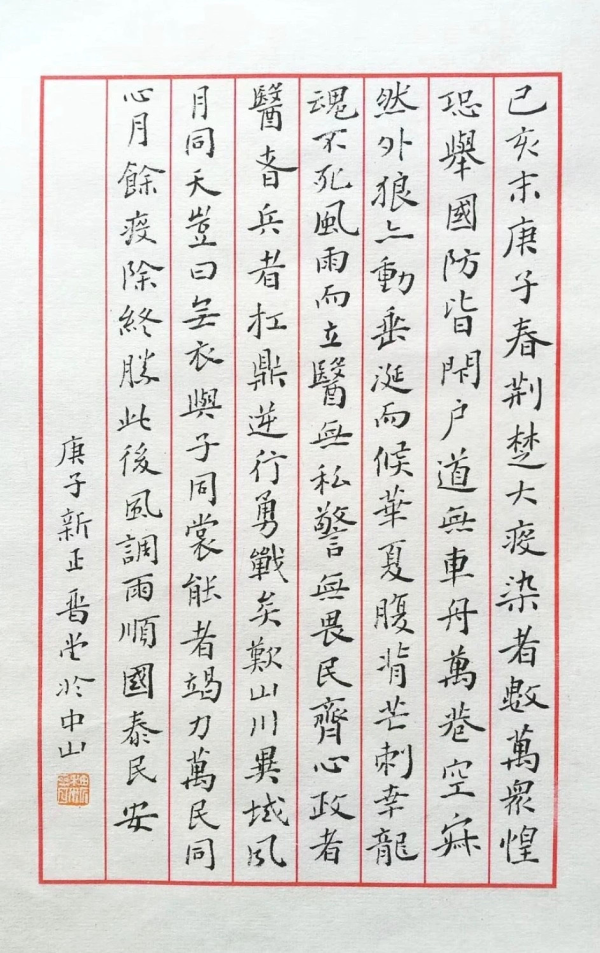 己亥末庚子春荆楚大疫染者數萬衆惶
恐舉國防皆閉户道無車舟萬巷空寂
然外狼亦動垂涎而候華夏腹背芒刺幸龍
魂不死風雨而立醫無私警無畏民齊心政者
醫者兵者扛鼎逆行勇戰矣歎山川異域風
月同天豈曰無衣與子同裳能者竭力萬民同
心月餘疫除終勝此後風調雨順國泰民安
庚子新正晋堂於中山